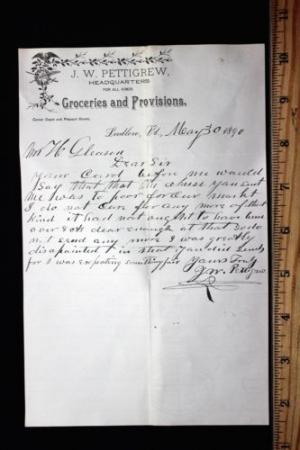 J. W. PETTIGREW,
HEADQUARTERS
FOR ALL KINDS
Groceries and Provisions.
Corner Depot and Pleasant Streets.
Ludlow, Vt., May 30 1890
Mr H. Gleason
Dear Sir
Your Card before me would
Say that that the cheese you sent
me was to poor for our market
I do not Care for any more of that
Kind it had not ought to have been
over 8 dear enough at that So do
not send any more I was greatly
disapointed in that
for I was expecting something fair
Yours Truly
J. W. Pettigrew
1
2
3
4
5
6
7
8
9
10
11